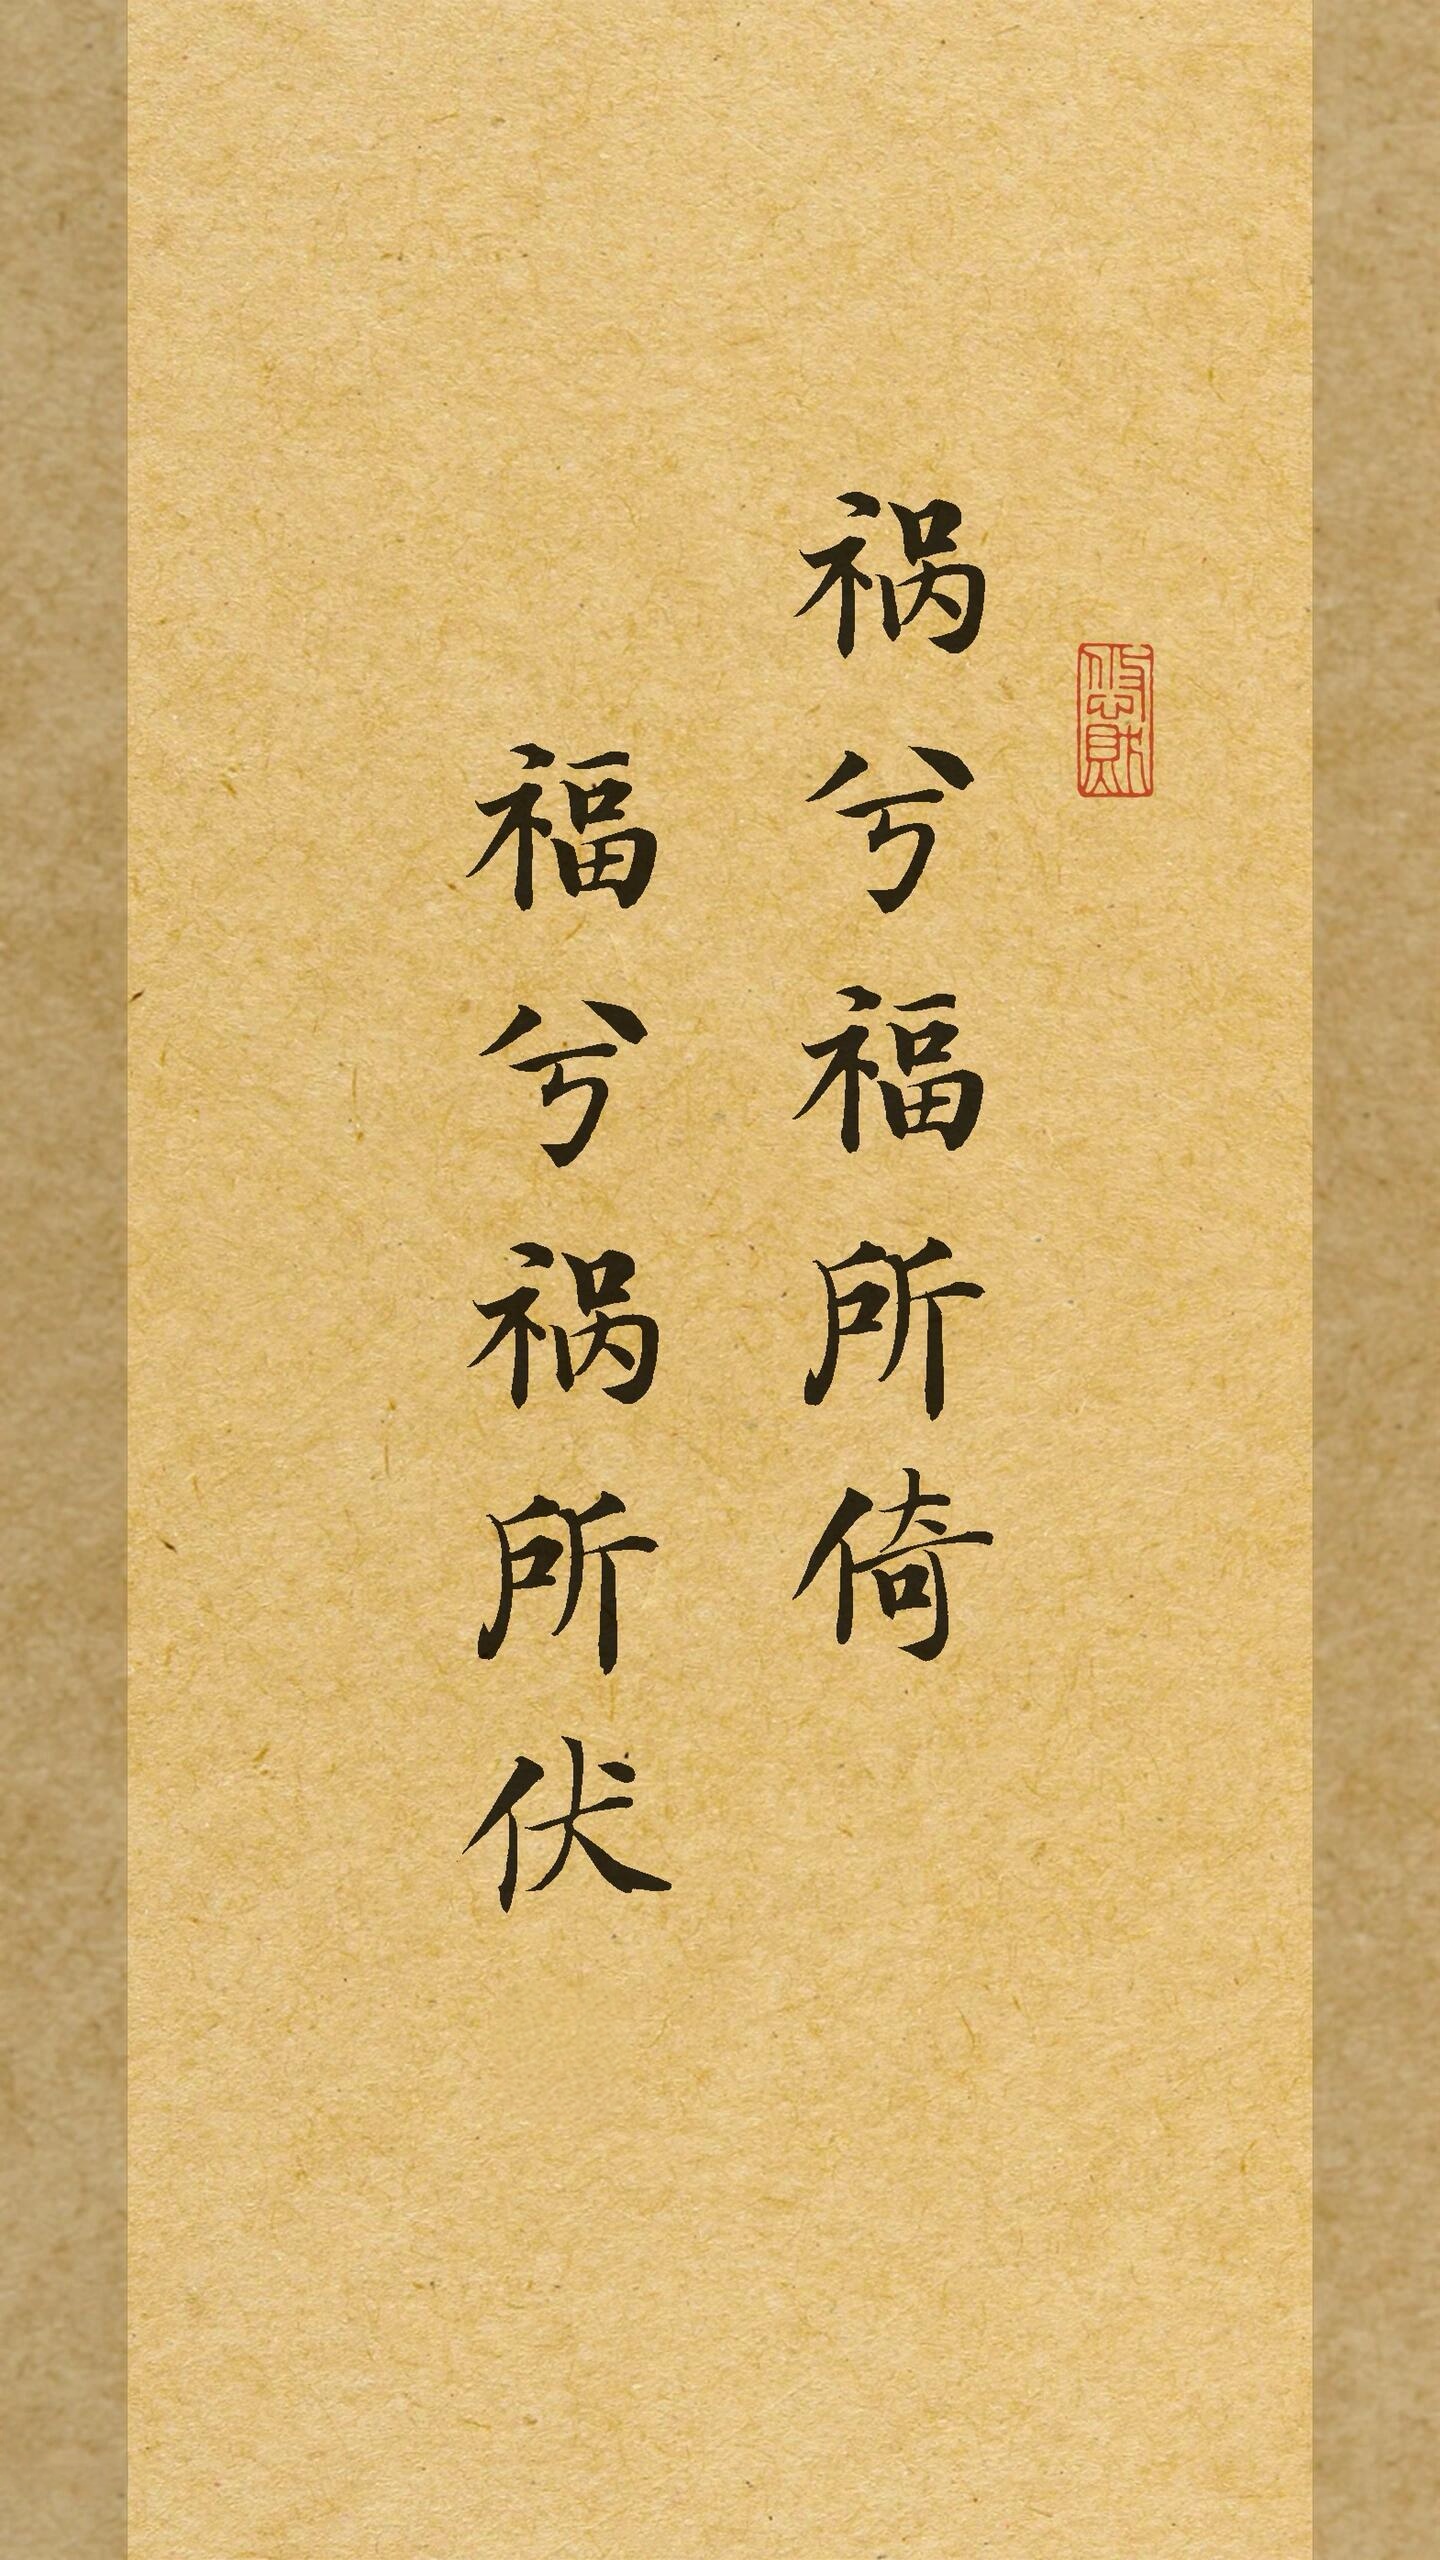 祸兮福所倚
福兮祸所伏